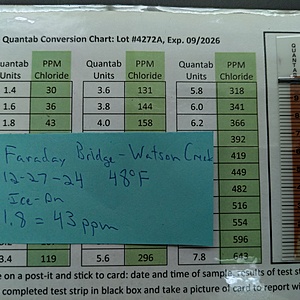 Quantab Conversion Chart: Lot #4272A, Exp. 09/2026
Quantab Units PPM Chloride Quantab Units PPM Chloride Quantab Units PPM Chloride
1.4 30 3.6 131 5.8 318
1.6 36 3.8 144 6.0 341
1.8 43 4.0 158 6.2 366
392
419
449
482
516
554
3.4 119 5.6 296 7.8 643
Faraday Bridge - Watson Creek
12-27-24 48°F
Ice-On
1.8 = 43 ppm
e on a post-it and stick to card: date and time of sample, results of test st
completed test strip in black box and take a picture to report wh
QUANTA